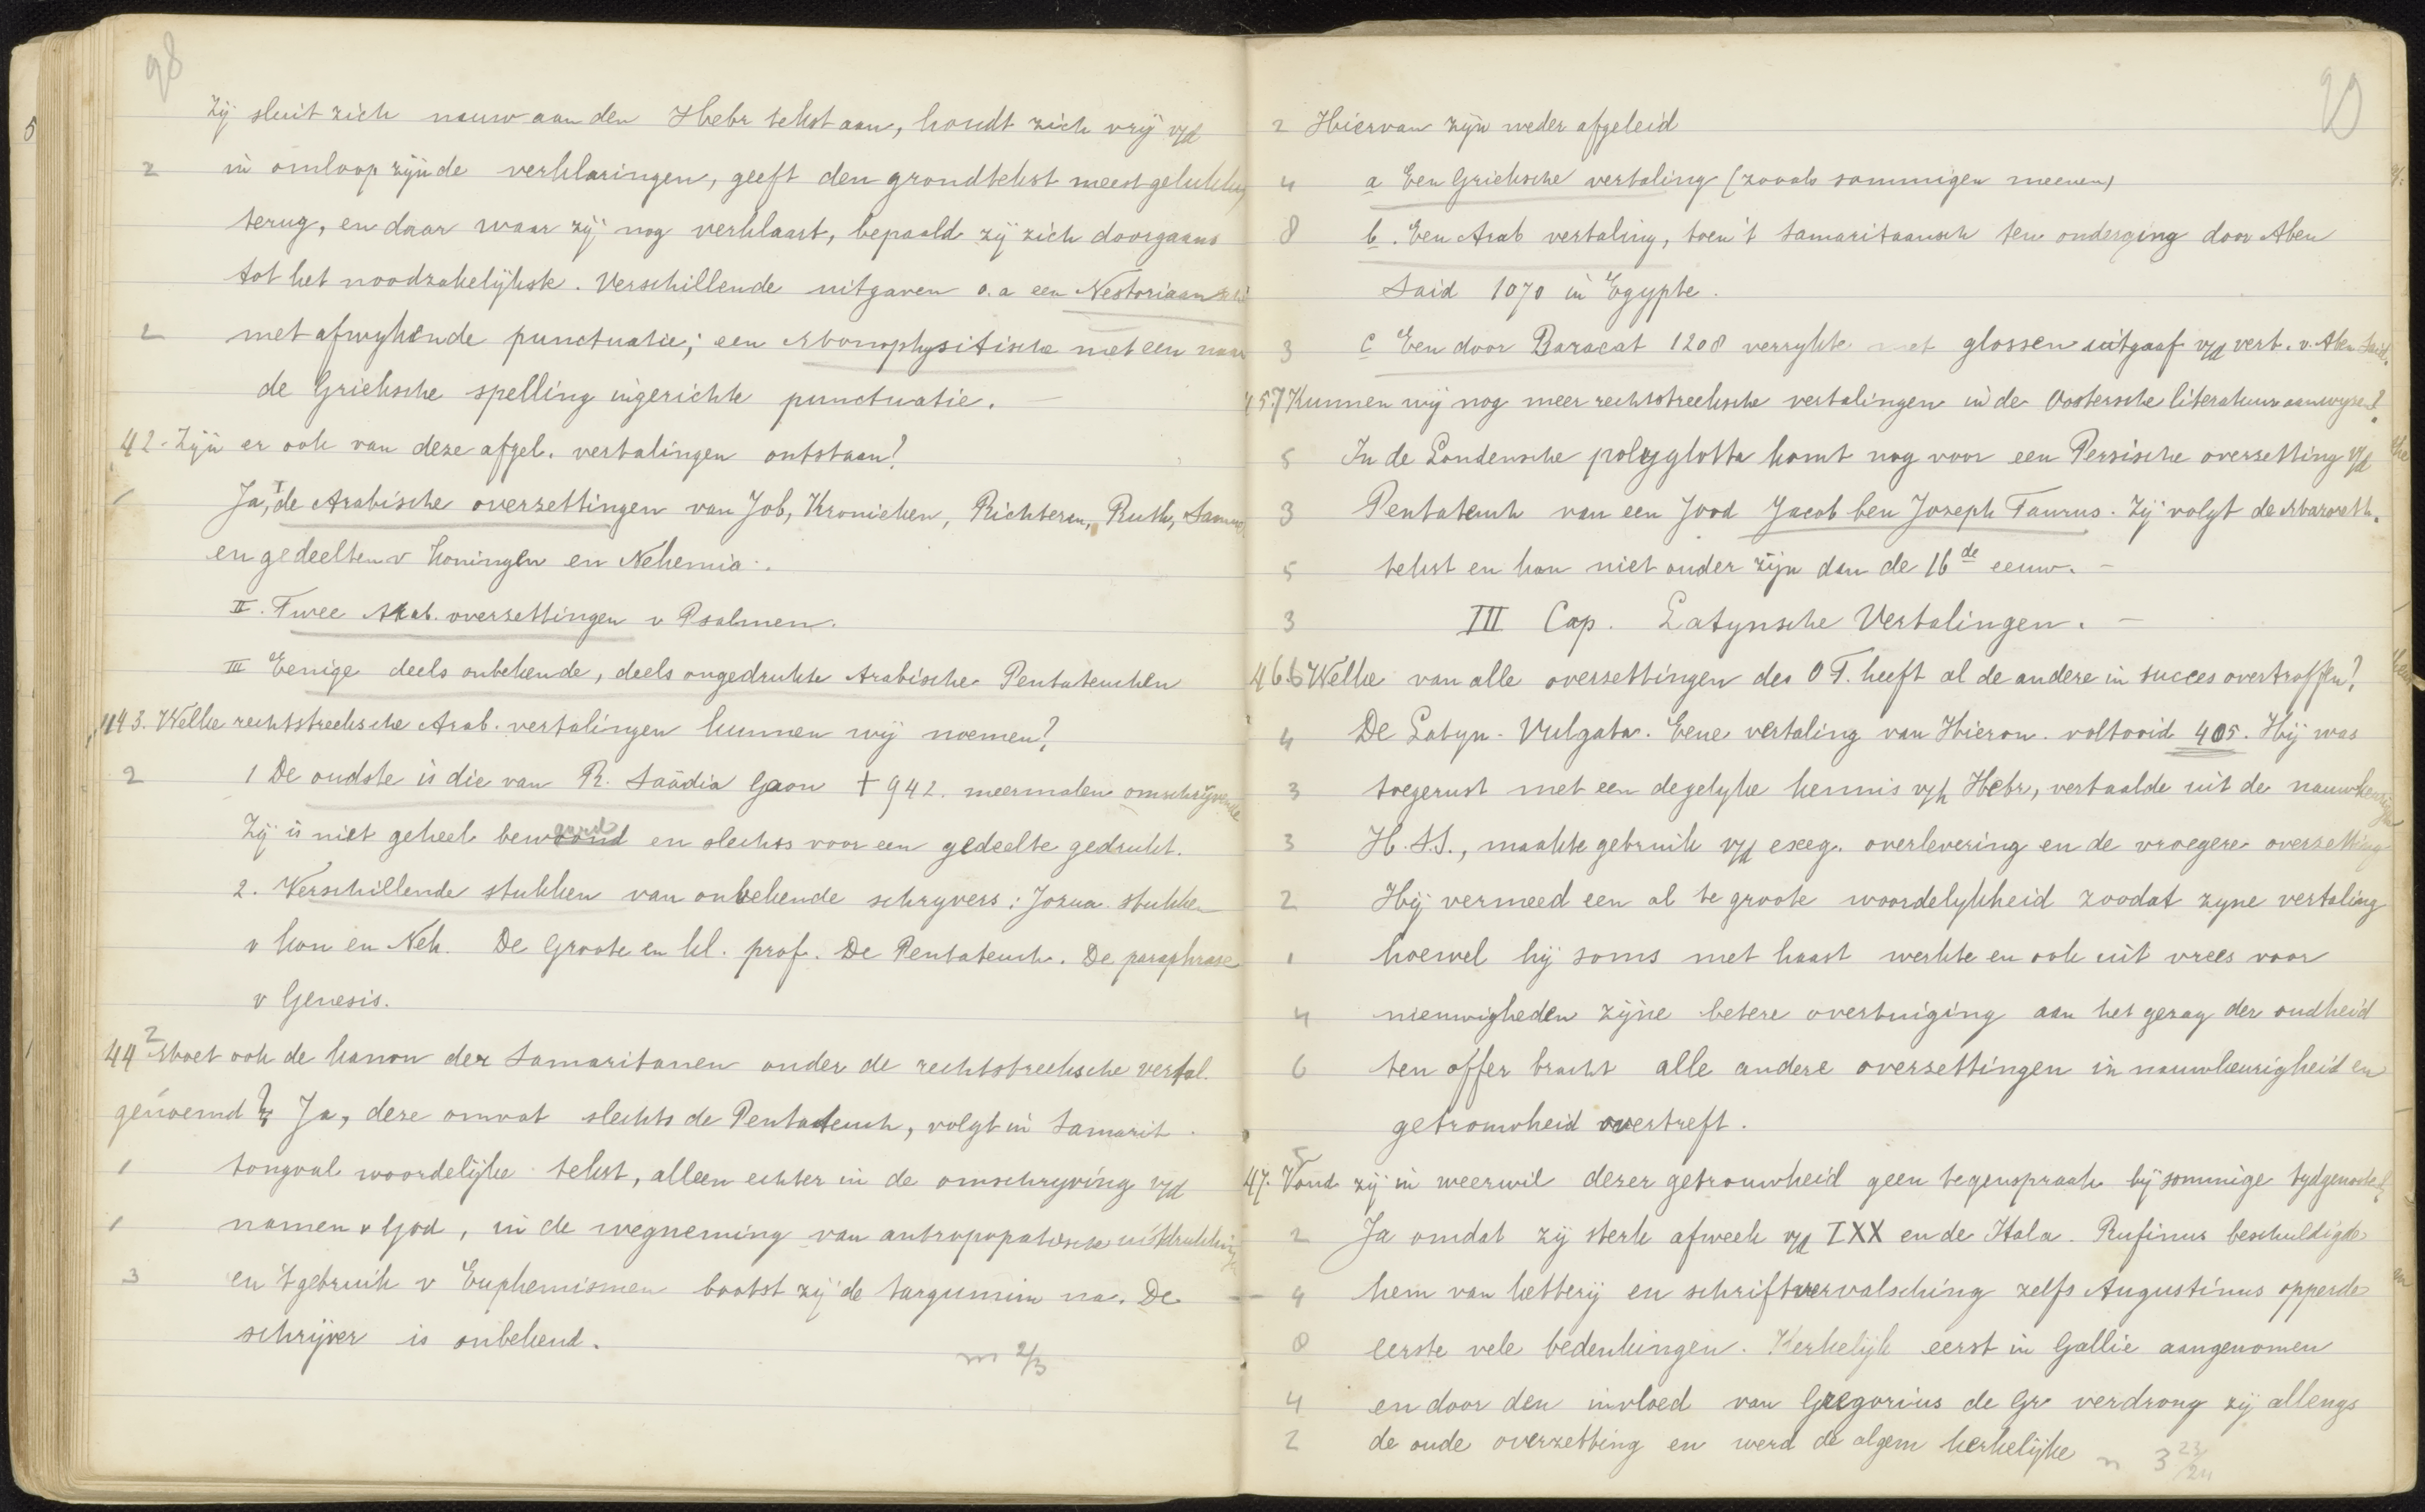 98
Zij sluit zich nauw aan den Hebr tekst aan, houdt zich vrij v/d
2 in omloop zijnde verklaringen, geeft den grondtekst meest gelukkig
terug, en daar waar zij nog verklaart, bepaald zij zich doorgaans
tot het noodzakelijkste. Verschillende uitgaven o.a een Nestoriaansche
2 met afwykende punctuatie; een Monophysitische met een naar
de Grieksche spelling ingerichte punctuatie. —
42. Zijn er ook van deze afgel. vertalingen ontstaan?
1 Ja, I de Arabische overzettingen van Job, Kronieken, Richteren, Ruth, Samuel
en gedeelten v Koningen en Nehemia.
II. Twee Arab. overzettingen v Psalmen.
III Eenige deels onbekende, deels ongedrukte Arabische Pentateuchen
43. Welke rechtstreeksche Arab. vertalingen kunnen wij noemen?
2 1 De oudste is die van R. Saädia Gaon † 942. meermalen omschrijvende
Zij is niet geheel bewaard en slechts voor een gedeelte gedrukt.
2. Verschillende stukken van onbekende schryvers: Jozua. stukken
v kon en Neh. De Groote en kl. prof. De Pentateuch. De paraphrase
v Genesis.
44 2 Moet ook de kanon der Samaritanen onder de rechtstreeksche vertal.
genoemd? Ja, deze omvat slechts de Pentateuch, volgt in Samarit.
1 tongval woordelijke tekst, alleen echter in de omschryving v/d
1 namen v God, in de wegneming van antropopatische uitdrukking
3 en 't gebruik v Euphemismen bootst zij de targumim na. De
schrijver is onbekend.
m 2/3
99
2 Hiervan zijn weder afgeleid
4 a Een Grieksche vertaling (zooals sommigen meenen)
8 b. Een Arab vertaling, toen 't Samaritaansch ten onderging door Aben
Said 1070 in Egypte.
3 c Een door Baracat 1208 verrykte met glossen uitgaaf v/d vert. v. Aben Said.
45. 7 Kunnen wij nog meer rechtstreeksche vertalingen in de Oostersche literatuur aanwyzen?
5 In de Londensche polyglotta komt nog voor een Persische overzetting v/d
3 Pentateuch van een Jood Jacob ben Joseph Taurus. Zij volgt de Masoreth.
5 tekst en kan niet ouder zijn dan de 16de eeuw. —
3 III Cap. Latynsche Vertalingen. —
46. 6 Welke van alle overzettingen des O T. heeft al de andere in succes overtroffen?
4 De Latyn. Vulgata. Eene vertaling van Hieron. voltooid 405. Hij was
3 toegerust met een degelyke kennis v/h Hebr, vertaalde uit de nauwkeurige
3 H. S.S., maakte gebruik v/d exeg. overlevering en de vroegere overzetting
2 Hij vermeed een al te groote woordelykheid zoodat zyne vertaling
1 hoewel hij soms met haast werkte en ook uit vrees voor
4 nieuwigheden zijne betere overtuiging aan het gezag der oudheid
6 ten offer bracht alle andere overzettingen in nauwkeurigheid en
getrouwheid overtreft.
47. 5 Vond zij in weerwil dezer getrouwheid geen tegenspraak bij sommige tydgenooten?
2 Ja omdat zij sterk afweek v/d LXX en de Itala. Rufinus beschuldigde
4 hem van ketterij en schriftvervalsching zelfs Augustinus opperde
8 eerste vele bedenkingen. Kerkelijk eerst in Gallie aangenomen
4 en door den invloed van Gregorius de Gr verdrong zij allengs
2 de oude overzetting en werd de algem kerkelijke
n 3 23/24